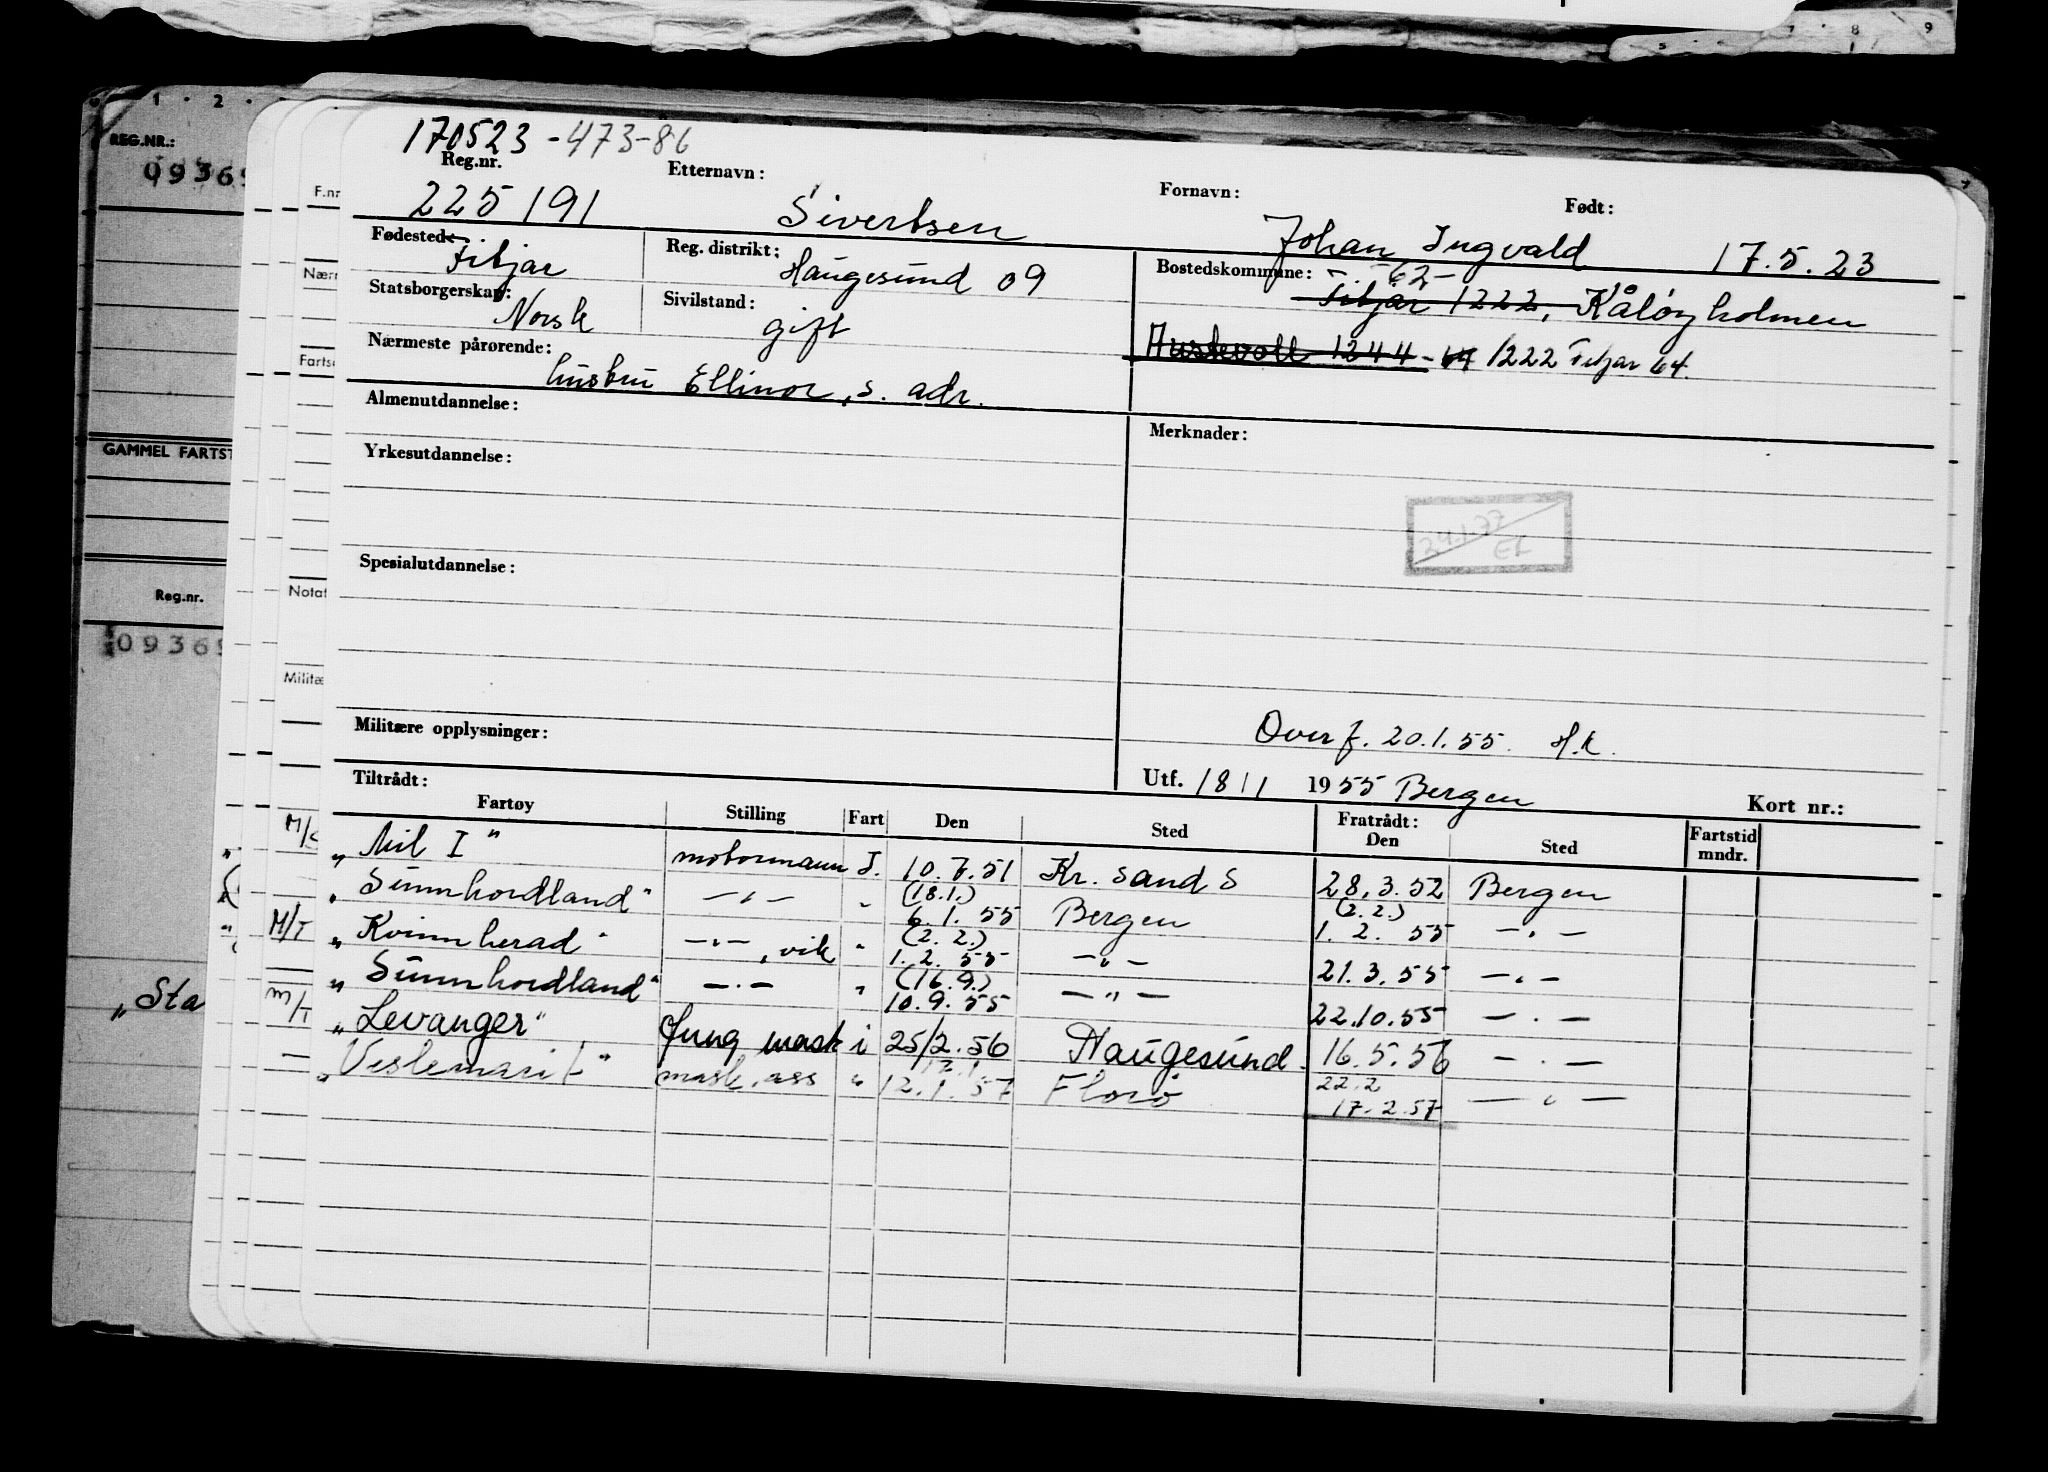 7 8 9
5
1 · 2 ·
REG.NR.:
0936
GAMMEL FARTST
Reg.nr.
0936
„Sta
F.nr
Nærn
Fartsø
Notat
Militæ
M/T
m/T
170523-473-86
Reg.nr. Etternavn: Fornavn: Født:
225191 Sivertsen Johan Ingvald 17.5.23
Fødested: Fitjar Reg. distrikt: Haugesund 09 Bostedskommune: -62-
Fitjar 1222, Kåløyholmen
Statsborgerskap: Norsk Sivilstand: gift
Austevoll 1244 - 1222 Fitjar 64.
Nærmeste pårørende: hustru Ellinor, s. adr.
Almenutdannelse: Merknader:
Yrkesutdannelse:
24.1.77
EL
Spesialutdannelse:
Militære opplysninger: Overf. 20.1.55. H.K.
Tiltrådt: Utf. 18/1 1955 Bergen Kort nr.:
Fartøy Stilling Fart Den Sted Fratrådt: Den Sted Fartstid mndr.
„Mil I" motormann I. 10.7.51 Kr. sand S 28.3.52 Bergen
(18.1.) (2.2.)
„Sunnhordland" —"— " 6.1.55 Bergen 1.2.55 —"—
(2.2.)
„Kvinnherad" —"—, vik " 1.2.55 —"— 21.3.55 —"—
(16.9.)
„Sunnhordland" —"— " 10.9.55 —"— 22.10.55 —"—
„Levanger" Jung mask i 25/2.56 Haugesund 16.5.56 —"—
22.2
„Veslemari" mask.ass " 12.1.57 Florø 17.2.57 —"—